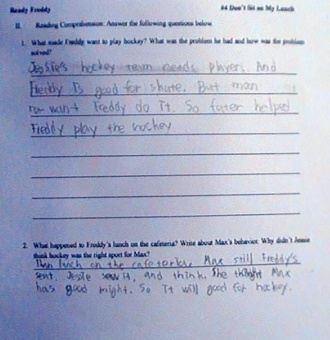 Ready Freddy
#4 Don't Sit on My Lunch
II. Reading Comprehension: Answer the following questions below.
1. What made Freddy want to play hockey? What was the problem he had and how was the problem
solved?
Jessie's hockey team needs player. And
Freddy Is good for shute. But mom
not want Freddy do It. So futer helped
Freddy play the hockey
2. What happened to Freddy's lunch on the cafeteria? Write about Max's behavior. Why didn't Jessie
think hockey was the right sport for Max?
lunch on the cafeteria, Max still Freddy's
seat. Jesie saw It, and think. She thought Max
has good might. So It will good for hockey.